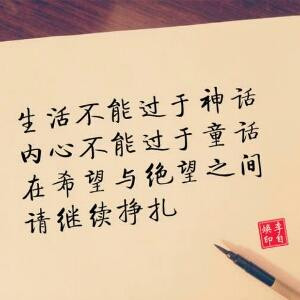 生活不能过于神话
内心不能过于童话
在希望与绝望之间
请继续挣扎